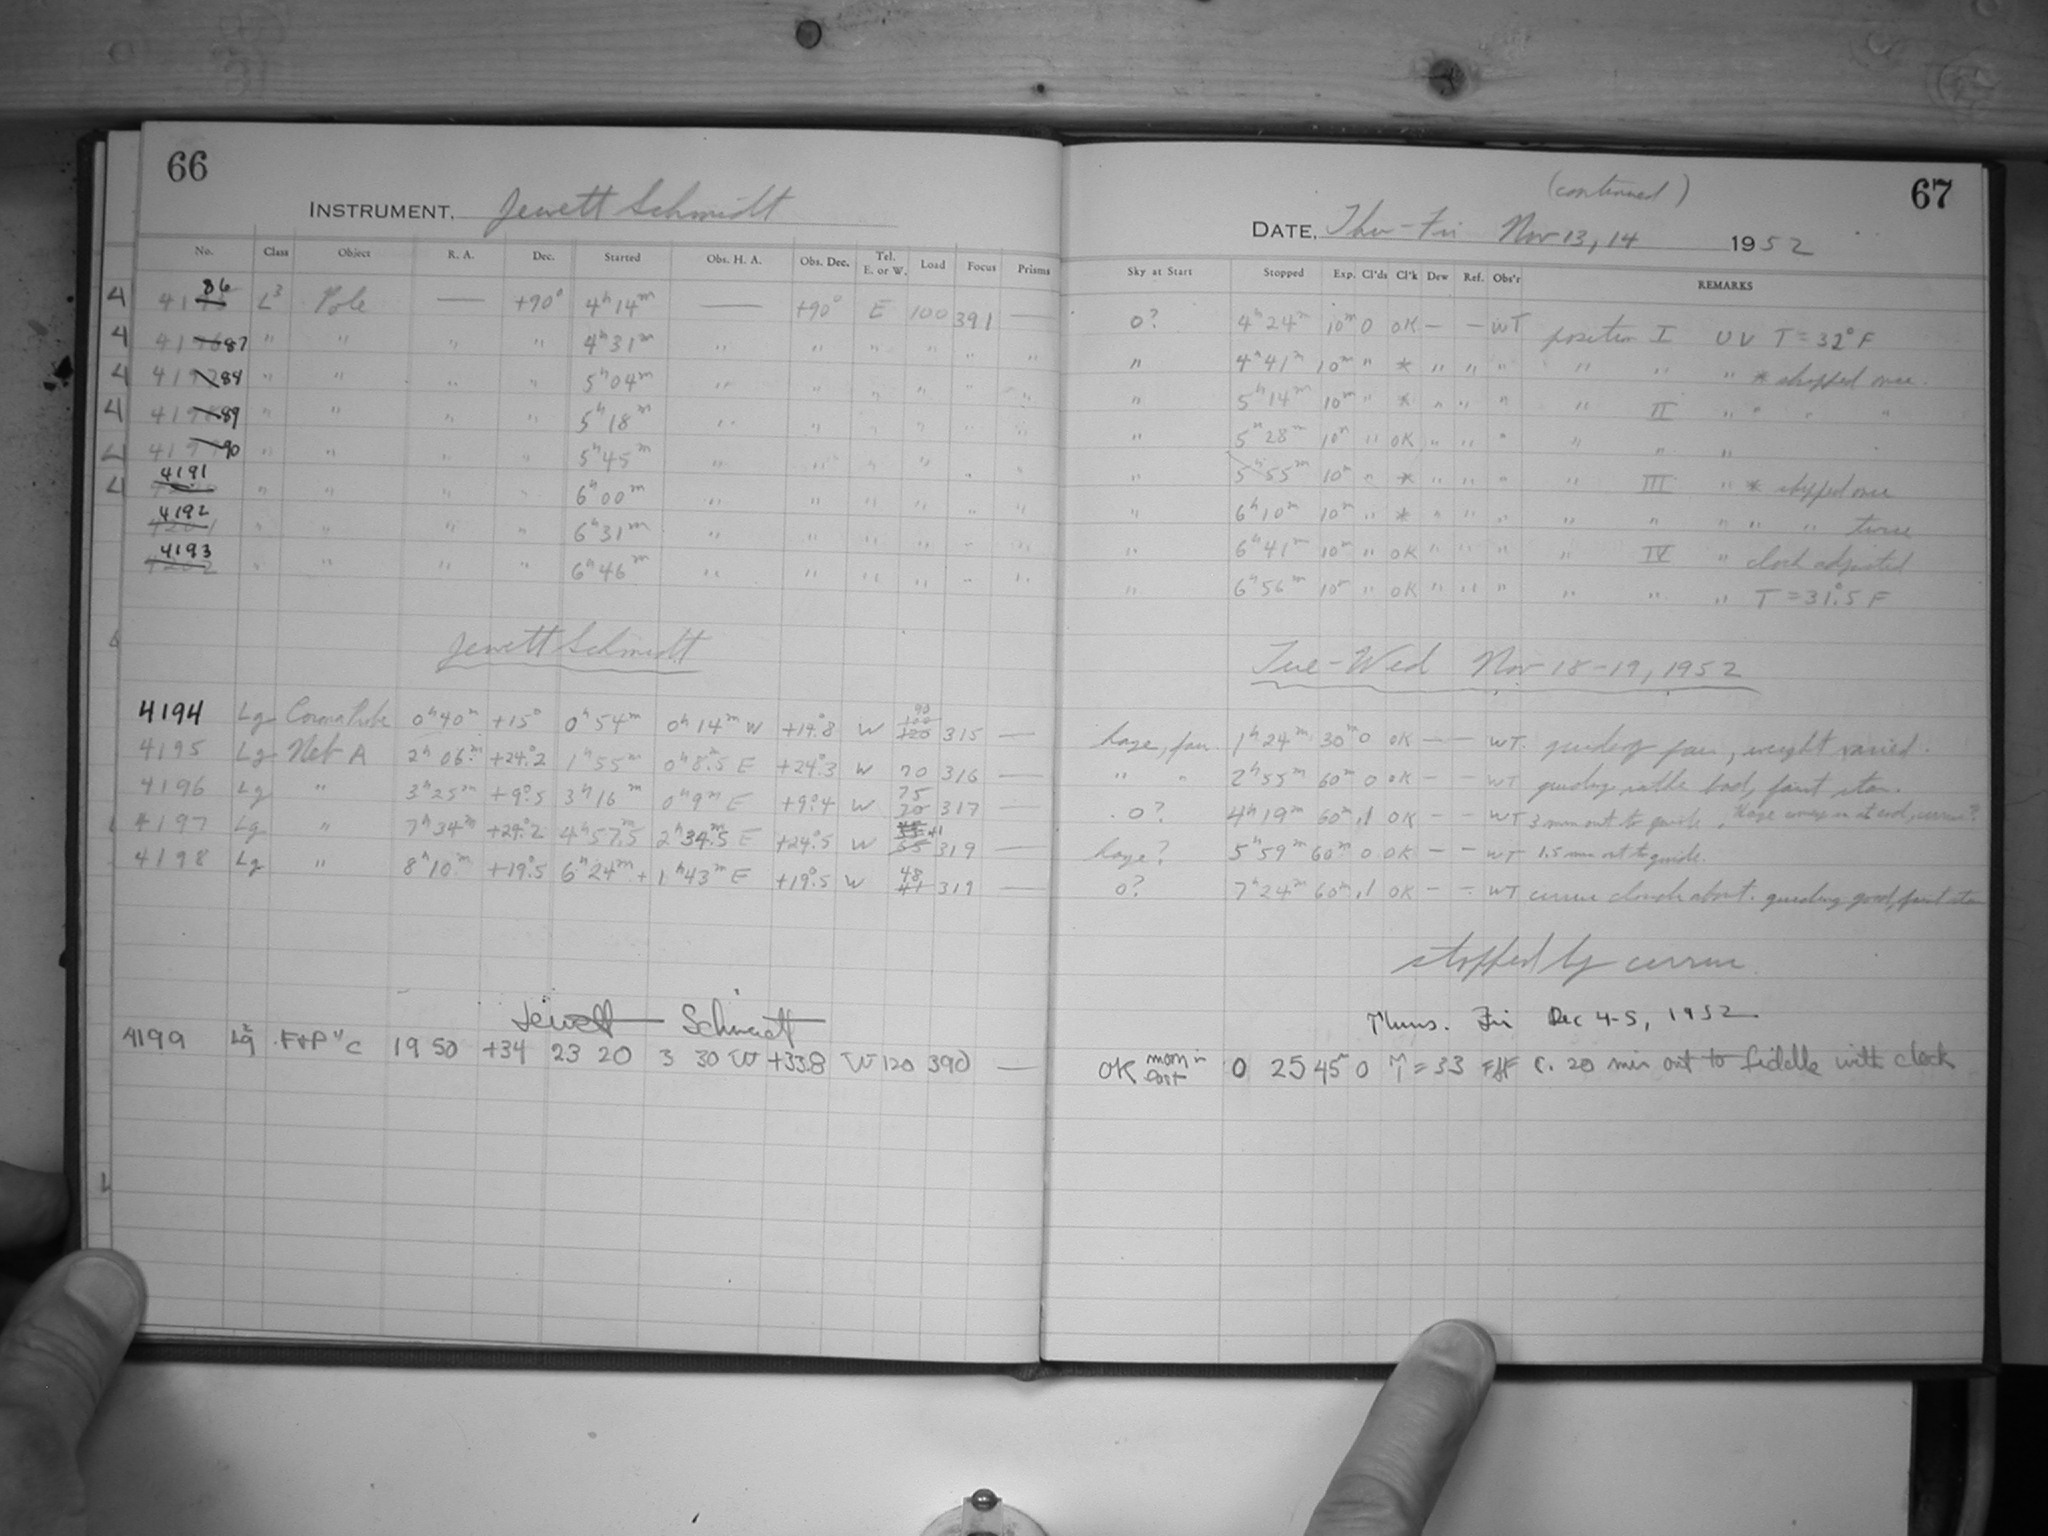 66
INSTRUMENT, Jewett Schmidt
No. Class Object R. A. Dec. Started Obs. H. A. Obs. Dec. Tel. E. or W. Load Focus Prisms
4 4186 L³ Pole — +90° 4ʰ14ᵐ — +90° E 100 391 —
4 4187 " " " " 4ʰ31ᵐ " " " " " "
4 " " " " 5ʰ04ᵐ " " " " " "
4 4189 " " " " 5ʰ18ᵐ " " " " " "
4 4190 " " " " 5ʰ45ᵐ " " " " " "
4 4191 " " " " 6ʰ00ᵐ " " " " " "
4192 " " " " 6ʰ31ᵐ " " " " " "
4193 " " " " 6ʰ46ᵐ " " " " " "
Jewett Schmidt
4194 Lg 0ʰ40ᵐ +15° 0ʰ54ᵐ 0ʰ14ᵐ W +14°.8 W 90 315 —
4195 Lg Neb A 2ʰ06ᵐ +24°.2 1ʰ55ᵐ 0ʰ8ᵐ.5 E +24°.3 W 70 316 —
4196 Lg " 3ʰ25ᵐ +9°.5 3ʰ16ᵐ 0ʰ9ᵐ E +9°.4 W 75 317 —
4197 Lg " 7ʰ34ᵐ +24°.2 4ʰ57ᵐ.5 2ʰ34ᵐ.5 E +24°.5 W 41 319 —
4198 Lg " 8ʰ10ᵐ +19°.5 6ʰ24ᵐ + 1ʰ43ᵐ E +19°.5 W 48 319 —
Jewett Schmidt
4199 F+P "C 19 50 +34 23 20 3 30 W +33.8 W 120 390 —
(continued) 67
DATE, Thu-Fri Nov 13, 14 1952
Sky at Start Stopped Exp. Cl'ds Cl'k Dew Ref. Obs'r REMARKS
0? 4ʰ24ᵐ 10ᵐ 0 OK — — WT position I UV T = 32° F
" 4ʰ41ᵐ 10ᵐ " * " " " " " " * stopped once.
" 5ʰ14ᵐ 10ᵐ " * " " " " II " " " "
" 5ʰ28ᵐ 10ᵐ " OK " " " " " "
" 5ʰ55ᵐ 10ᵐ " * " " " " III " * stopped once
" 6ʰ10ᵐ 10ᵐ " * " " " " " " " " twice
" 6ʰ41ᵐ 10ᵐ " OK " " " " IV " clock adjusted
" 6ʰ56ᵐ 10ᵐ " OK " " " " " " T = 31°.5 F
Tue-Wed Nov 18-19, 1952
haze, fair. 1ʰ24ᵐ 30ᵐ 0 OK — — WT. guiding fair, weight varied.
" " 2ʰ55ᵐ 60ᵐ 0 OK — — WT guiding rather bad, faint star.
0? 4ʰ19ᵐ 60ᵐ .1 OK — — WT 3 min out to guide, haze at end, cirrus?
haze? 5ʰ59ᵐ 60ᵐ 0 OK — — WT 1.5 min out to guide.
0? 7ʰ24ᵐ 60ᵐ .1 OK — — WT cirrus clouds about. guiding good, faint star
stopped by cirrus
Thurs. Fri Dec 4-5, 1952
OK moon in East 0 25 45ᵐ 0 T = 33 c. 20 min out to fiddle with clock